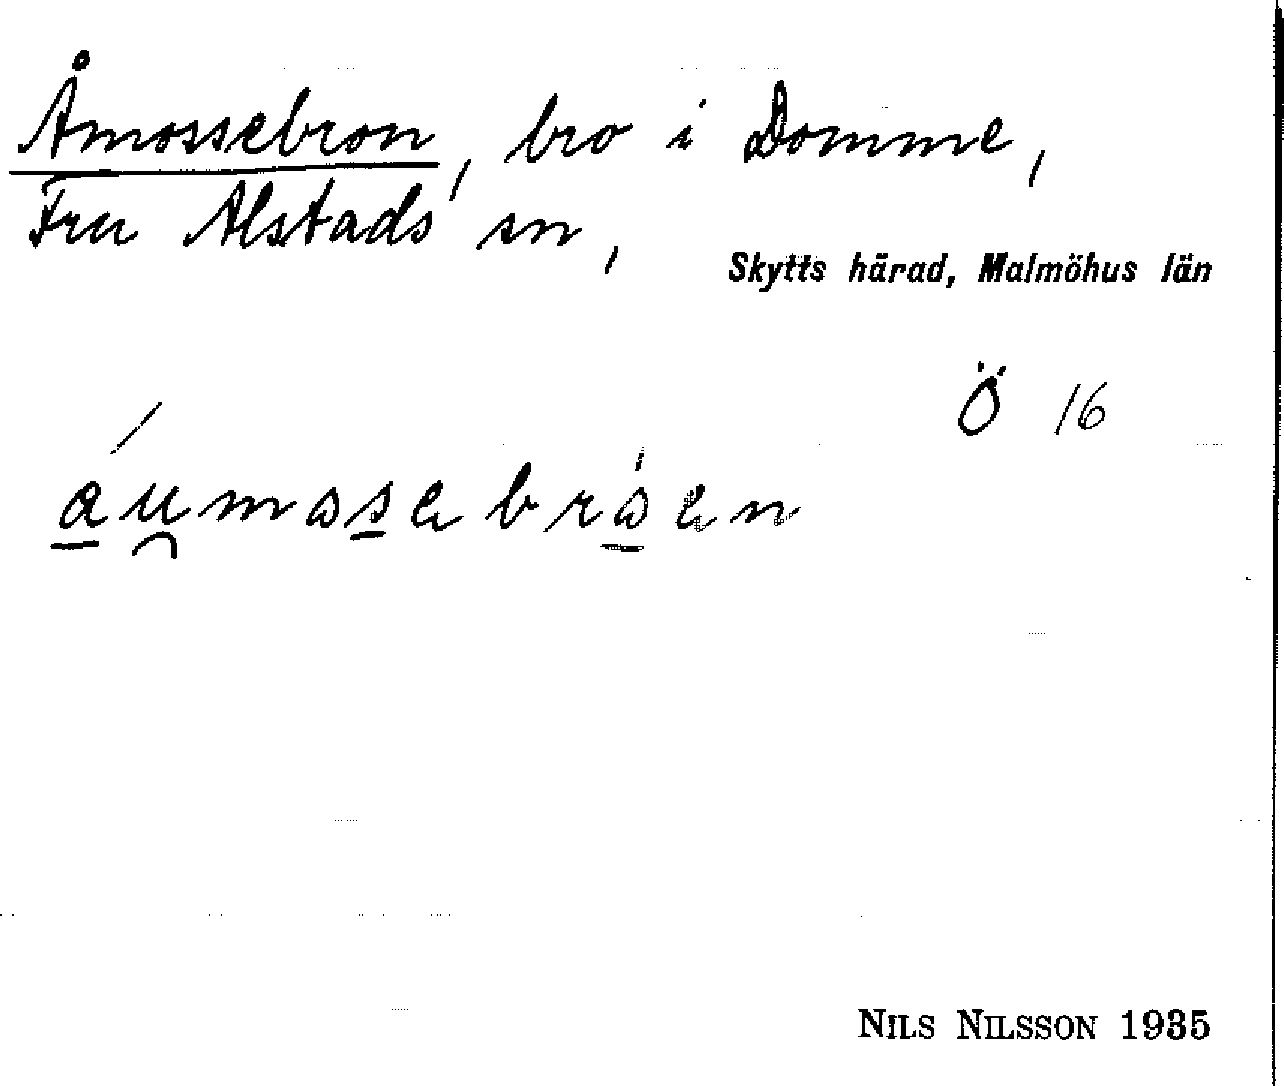 Åmossebron, bro i Domme,
Fru Alstads sn,
Skytts härad, Malmöhus län
Ö 16
áu̯mɷsebrɷ́en
NILS NILSSON 1935